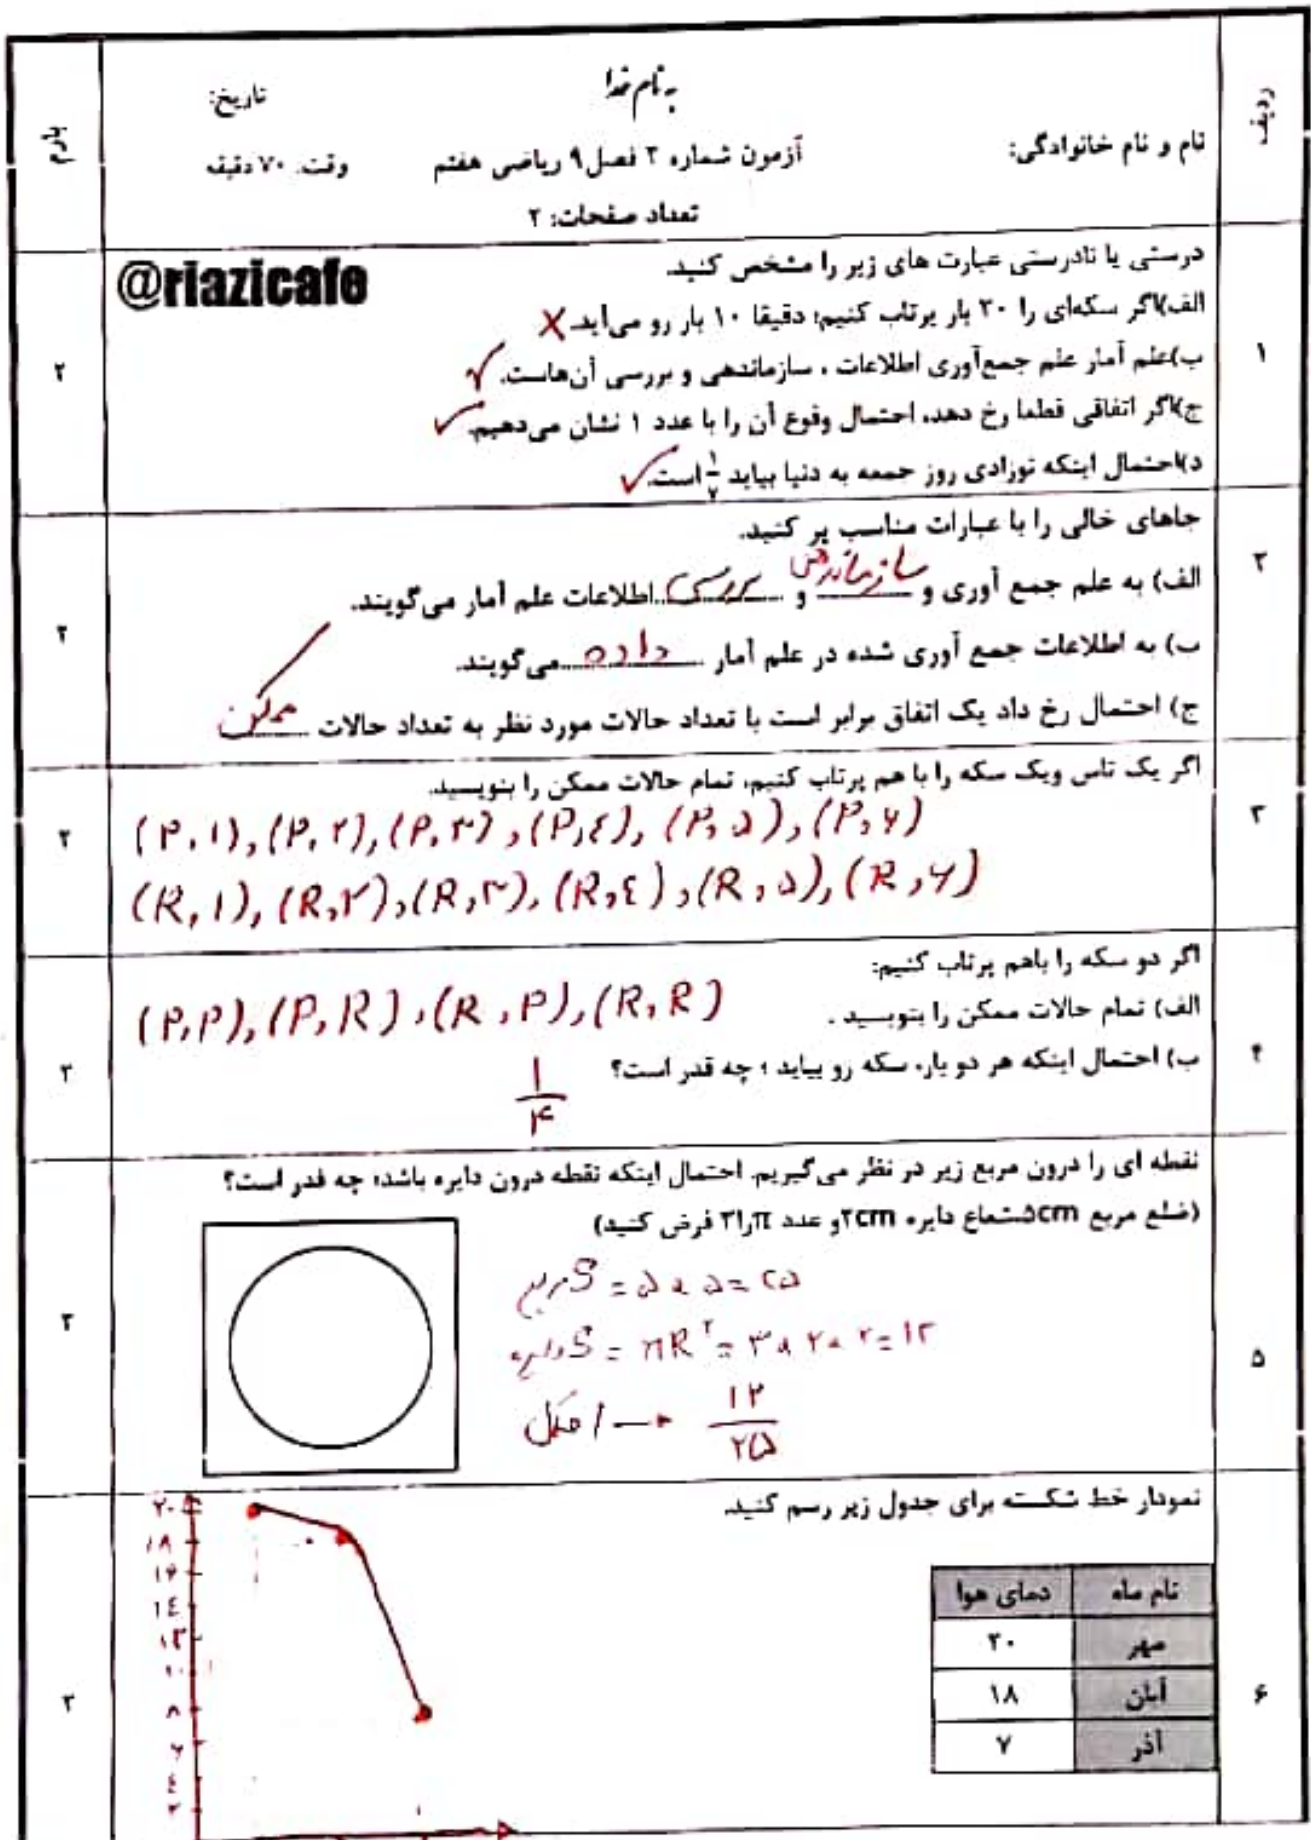 ردیف
به نام خدا
تاریخ:
بارم
نام و نام خانوادگی:
آزمون شماره ۲ فصل ۹ ریاضی هفتم
وقت: ۷۰ دقیقه
تعداد صفحات: ۲
@riazicafe
۱
درستی یا نادرستی عبارت های زیر را مشخص کنید.
الف)اگر سکه‌ای را ۲۰ بار پرتاب کنیم؛ دقیقا ۱۰ بار رو می‌آید. ✗
ب)علم آمار علم جمع‌آوری اطلاعات ، سازماندهی و بررسی آن‌هاست. ✓
ج)اگر اتفاقی قطعا رخ دهد، احتمال وقوع آن را با عدد ۱ نشان می‌دهیم. ✓
د)احتمال اینکه نوزادی روز جمعه به دنیا بیاید ۱/۷ است. ✓
۲
۲
جاهای خالی را با عبارات مناسب پر کنید.
الف) به علم جمع آوری و سازماندهی و بررسی اطلاعات علم آمار می‌گویند.
ب) به اطلاعات جمع آوری شده در علم آمار داده می‌گویند.
ج) احتمال رخ داد یک اتفاق برابر است با تعداد حالات مورد نظر به تعداد حالات ممکن
۲
۳
اگر یک تاس ویک سکه را با هم پرتاب کنیم، تمام حالات ممکن را بنویسید.
(P,۱),(P,۲),(P,۳),(P,٤),(P,۵),(P,۶)
(R,۱),(R,۲),(R,۳),(R,٤),(R,۵),(R,۶)
۲
۴
اگر دو سکه را باهم پرتاب کنیم:
الف) تمام حالات ممکن را بنویسید .
(P,P),(P,R),(R,P),(R,R)
ب) احتمال اینکه هر دو بار، سکه رو بیاید ؛ چه قدر است؟
۱/۴
۳
۵
نقطه ای را درون مربع زیر در نظر می‌گیریم. احتمال اینکه نقطه درون دایره باشد؛ چه قدر است؟
(ضلع مربع ۵cm شعاع دایره ۲cm و عدد π را ۳ فرض کنید)
S مربع = ۵ × ۵ = ۲۵
S دایره = πR² = ۳ × ۲ × ۲ = ۱۲
احتمال → ۱۲/۲۵
۳
۶
نمودار خط شکسته برای جدول زیر رسم کنید.
نام ماه دمای هوا
مهر ۲۰
آبان ۱۸
آذر ۷
۲۰
۱۸
۱۶
۱٤
۱۲
۱۰
۸
۶
٤
۲
۳